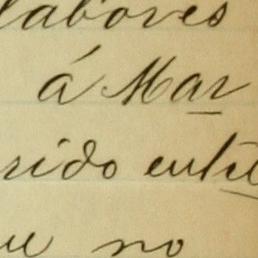 labores
á Mar
rido entre
ue no